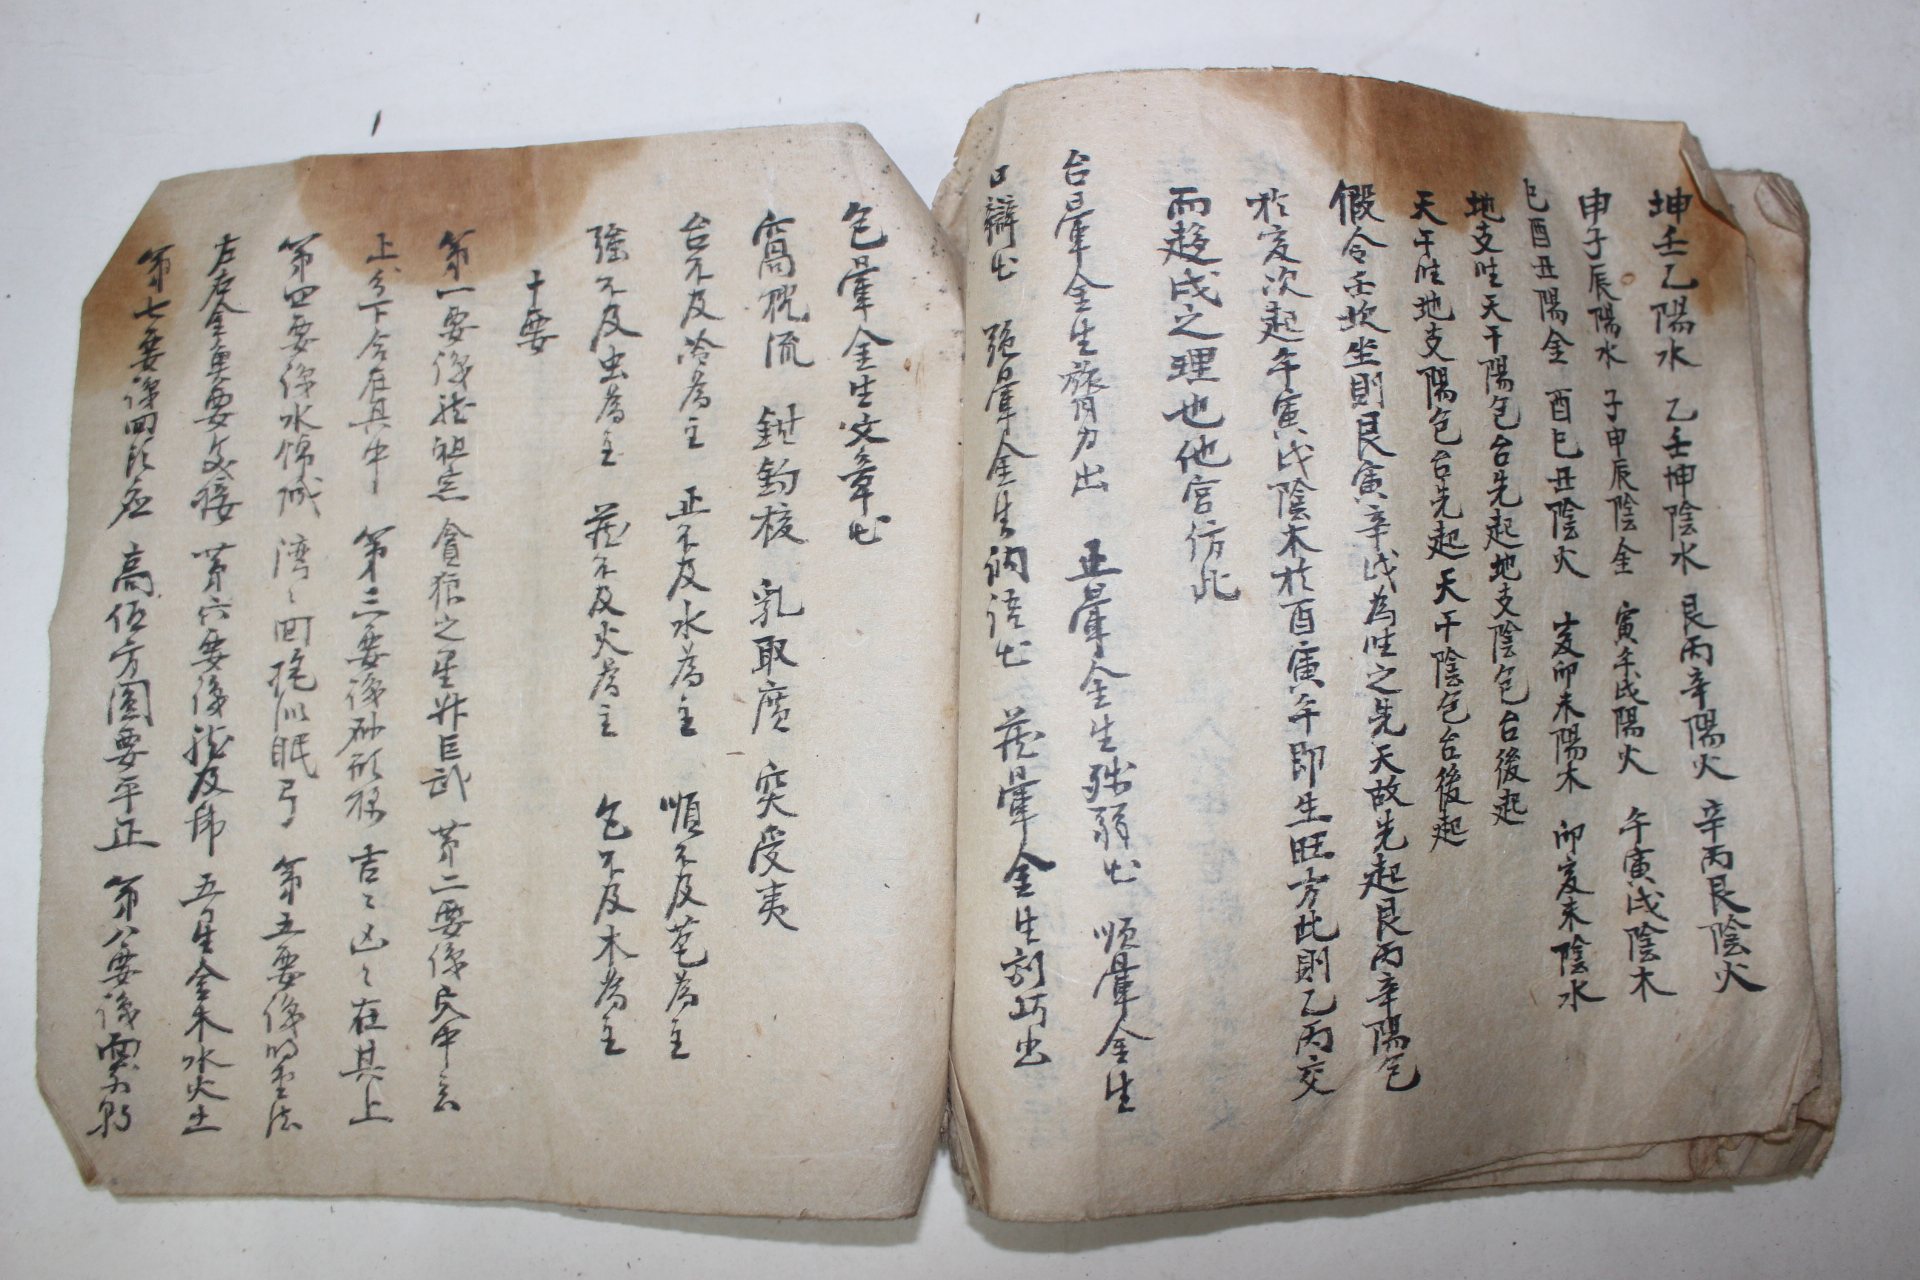 坤壬乙陽水 乙壬坤陰水 艮丙辛陽火 辛丙艮陰火
申子辰陽水 子申辰陰金 寅午戌陽火 午寅戌陰木
巳酉丑陽金 酉巳丑陰火 亥卯未陽木 卯亥未陰水
地支 天干陽包台先起地支陰包台後起
天干 地支陽包台先起天干陰包台後起
假令壬坎坐則艮寅辛戌為 之先天故先起艮丙辛陽包
於亥次起午寅戌陰木於酉寅午即生旺方此則乙丙交
而趍戌之理也他宮仿此
台暈金生膂力出 正暈金生殘弱出 順暈金生
口辯出 强暈金生 語出 葬暈金生刻巧出
包暈金生文章出
窩 流 鉗鈎 乳取廣 突受夷
台不及冷為主 正不及水為主 順不及芭為主
强不及虫為主 葬不及火為主 包不及木為主
十要
第一要後龍祖宗 貪狼之星并巨武 第二要後穴中
正 下合在其中 第三要後砂 吉〻凶〻在其上
第四要後水 城 湾〻回抱似眠弓 第五要後明堂法
左右 重要交接 第六要後龍及 五星金木水火土
第七要後回 應 高低方圓要平正 第八要後